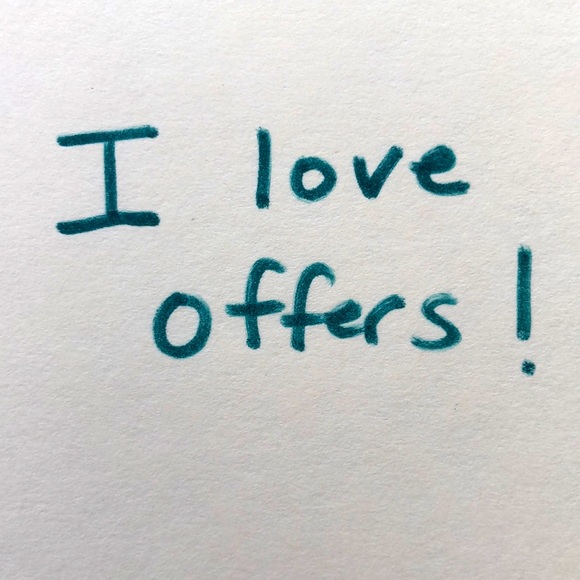 I love
offers!